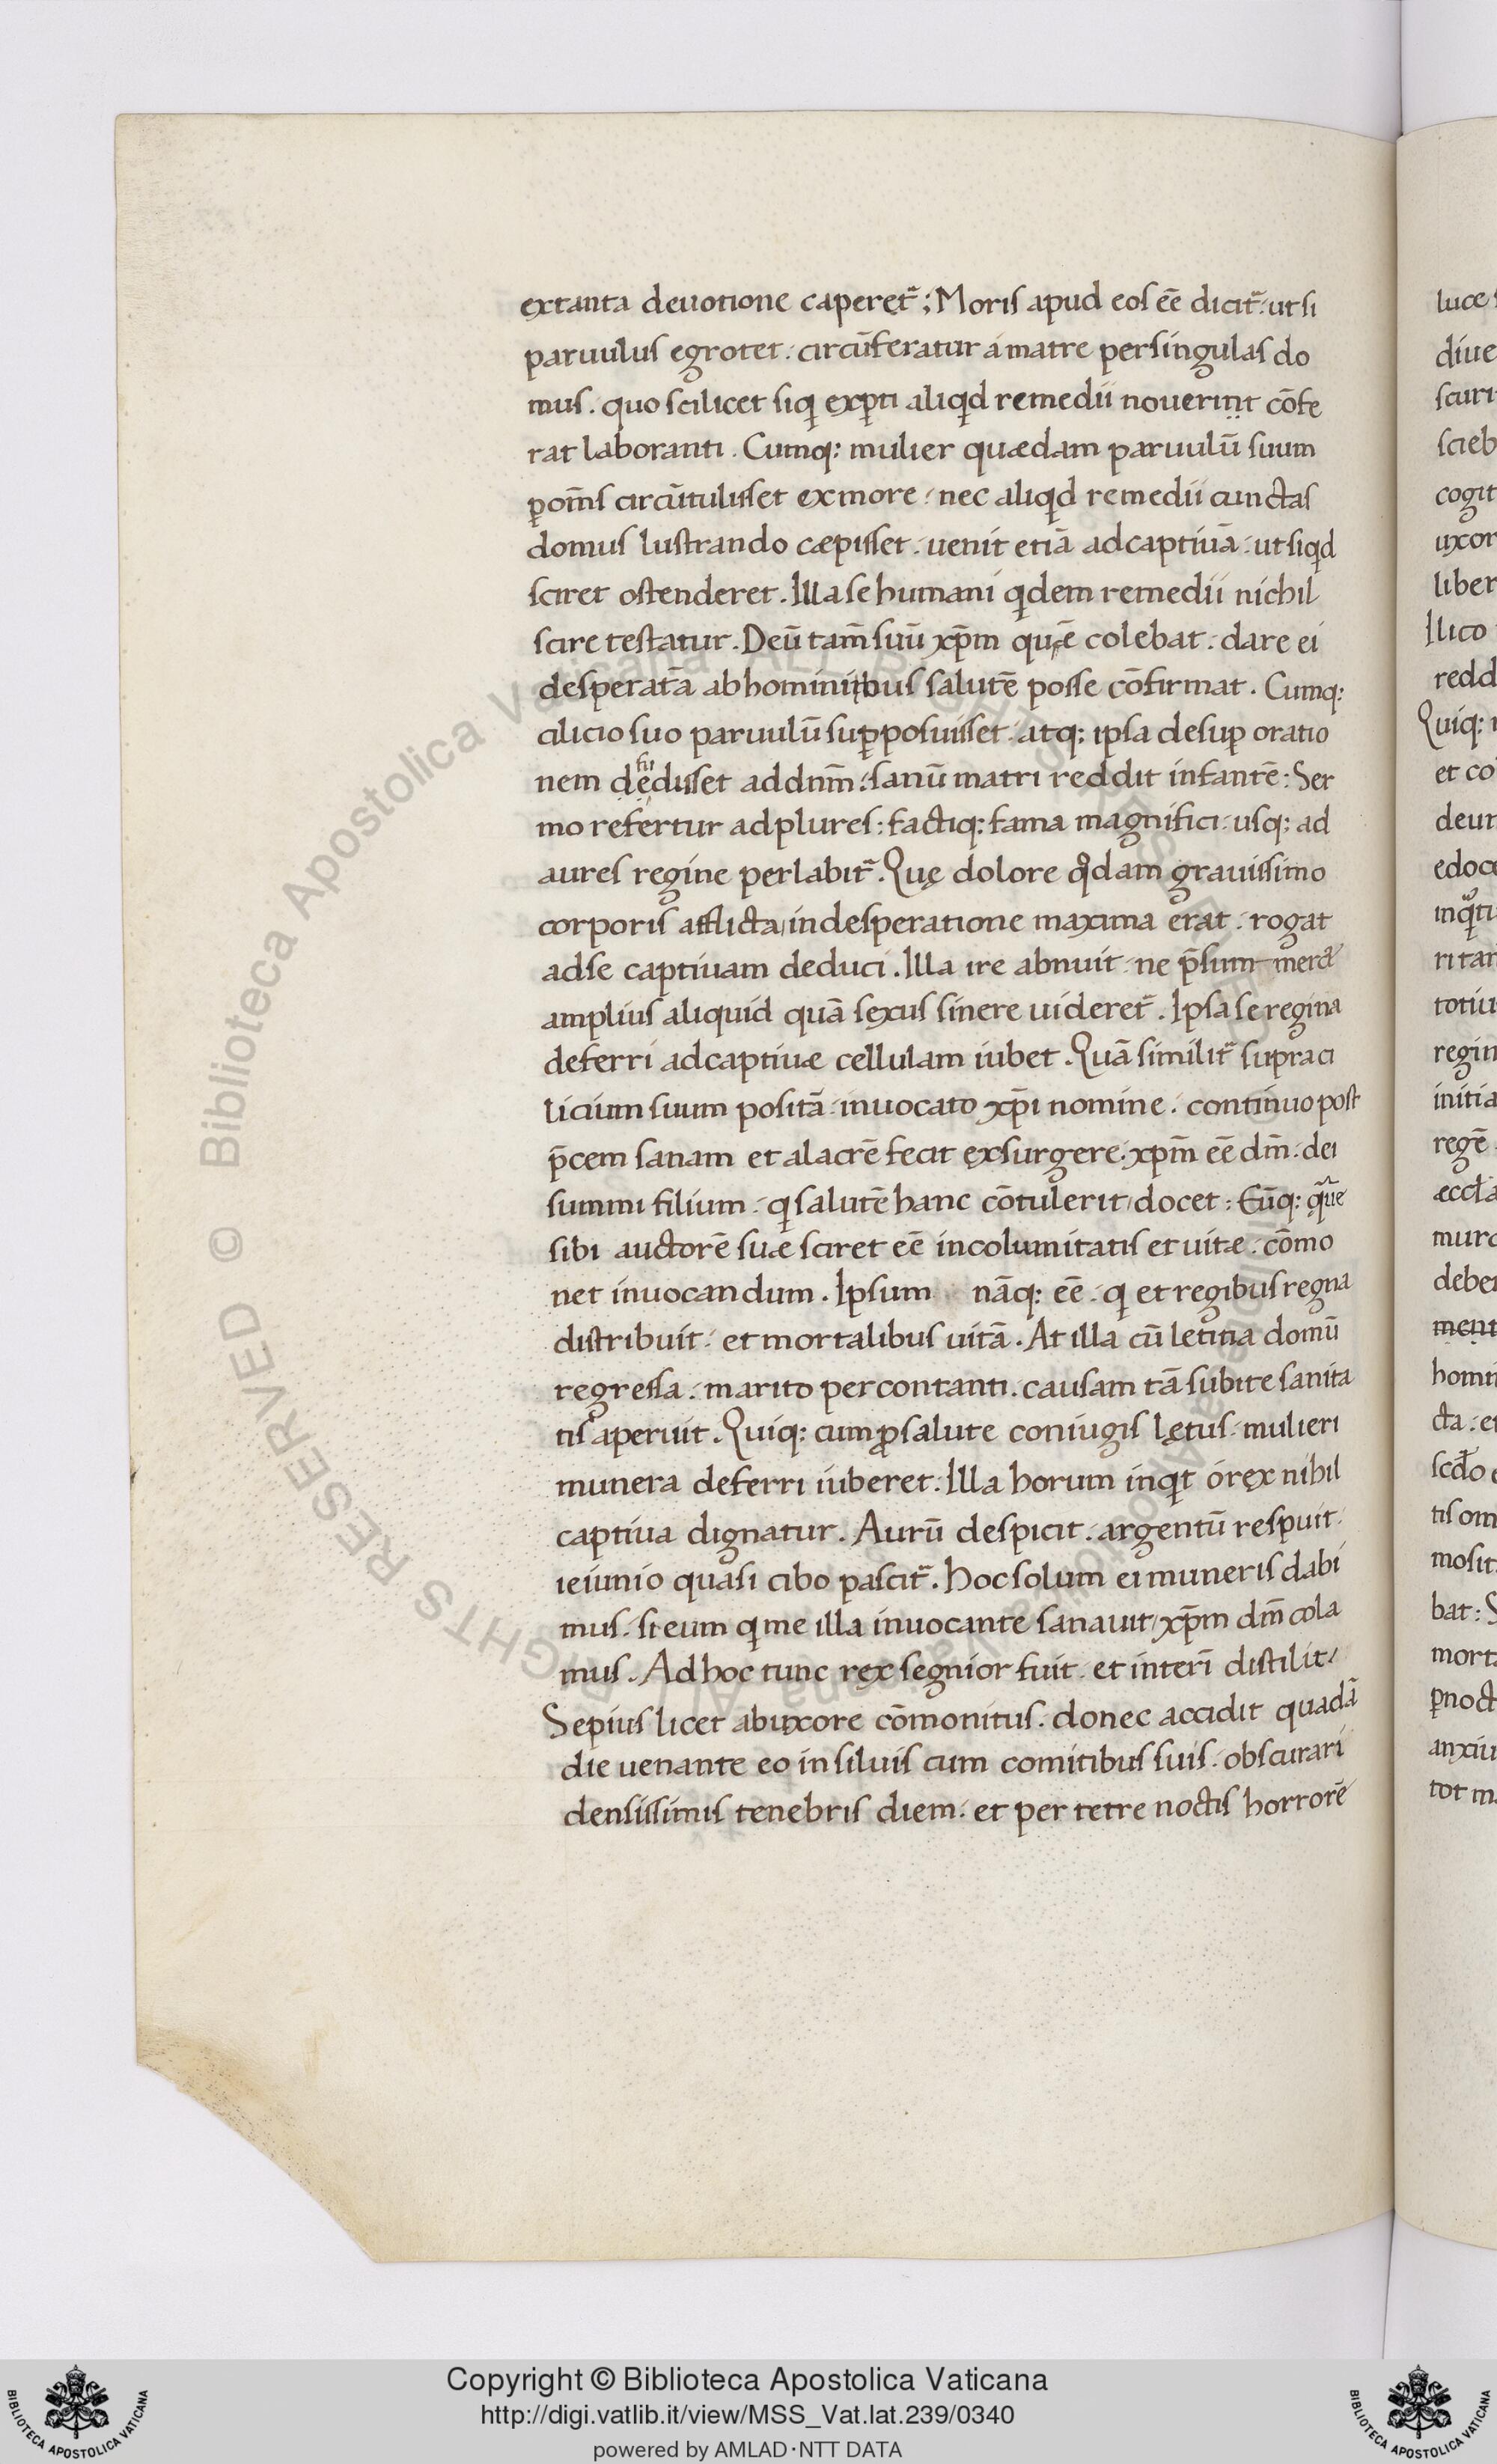 extanta deuotione caperet᷑; Moris apud eos eē dicit᷑. ut si
paruulus egrotet. circūferatur á matre persingulas do
mus. quo scilicet siqͥ exꝑti aliqͥd remedíí nouerint cōfe
rat laboranti. Cumq: mulier quædam paruulū suum
ꝑ om̄s circūtulisset ex more. nec aliqͥd remedíí cunctas
domus lustrando cæpisset. uenit etiā ad captiuā. ut siqͥd
sciret ostenderet. Illa se humani qͥdem remedíí nichil
scire testatur. Deū tam̄ suū xp̄m quę̄ colebat. dare ei
desperatā ab hominibus salutē posse cōfirmat. Cumq:
cilicio suo paruulū suꝑposuisset. atq: ipsa desuꝑ oratio
nem dedisset ad dnm̄. sanū matri reddit infantē: Ser
mo refertur ad plures: factiq: fama magnifici. usq: ad
aures regine perlabit᷑. Quę dolore qͦdam grauissimo
corporis afflicta, in desperatione maxima erat. rogat
ad se captiuam deduci. Illa ire abnuit. ne p̄summera
amplius aliquid quā sexus sinere uideret᷑. Ipsa se regina
deferri ad captiuæ cellulam iubet. Quā similit᷑ supra ci
licium suum positā. inuocato xp̄i nomine. continuo post
p̄cem sanam et alacrē fecit exsurgere. xpm̄ eē dm̄. dei
summi filium. qͥ salutē hanc cōtulerit, docet: Eūq: que
sibi auctorē suæ sciret eē incolumitatis et uitæ. cōmo
net inuocandum. Ipsum nāq: eē. qͥ et regibus regna
distribuit. et mortalibus uitā. At illa cū letitia domū
regressa. marito percontanti. causam tā subite sanita
tis aperuit. Quiq: cum ꝓ salute coniugis lętus. mulieri
munera deferri iuberet. Illa horum inqͥt ó rex nihil
captiua dignatur. Aurū despicit. argentū respuit.
ieiunio quasi cibo pascit᷑. Hoc solum ei muneris dabi
mus. si eum qͥ me illa inuocante sanauit, xp̄m dm̄ cola
mus. Ad hoc tunc rex segnior fuit. et interī distilit,
Sepius licet ab uxore cōmonitus. donec accidit quadā
die uenante eo in siluis cum comitibus suis. obscurari
densissimis tenebris diem. et per tetre noctis horrorē
Copyright © Biblioteca Apostolica Vaticana
http://digi.vatlib.it/view/MSS_Vat.lat.239/0340
powered by AMLAD·NTT DATA